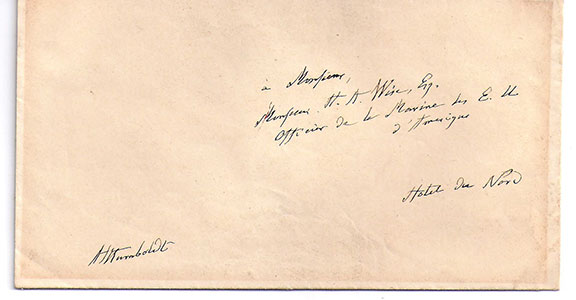 à Monsieur,
Monsieur H. A. Wise, Esq.
Officier de la Marine des E. U
d'Amérique
Hôtel du Nord
AlHumboldt